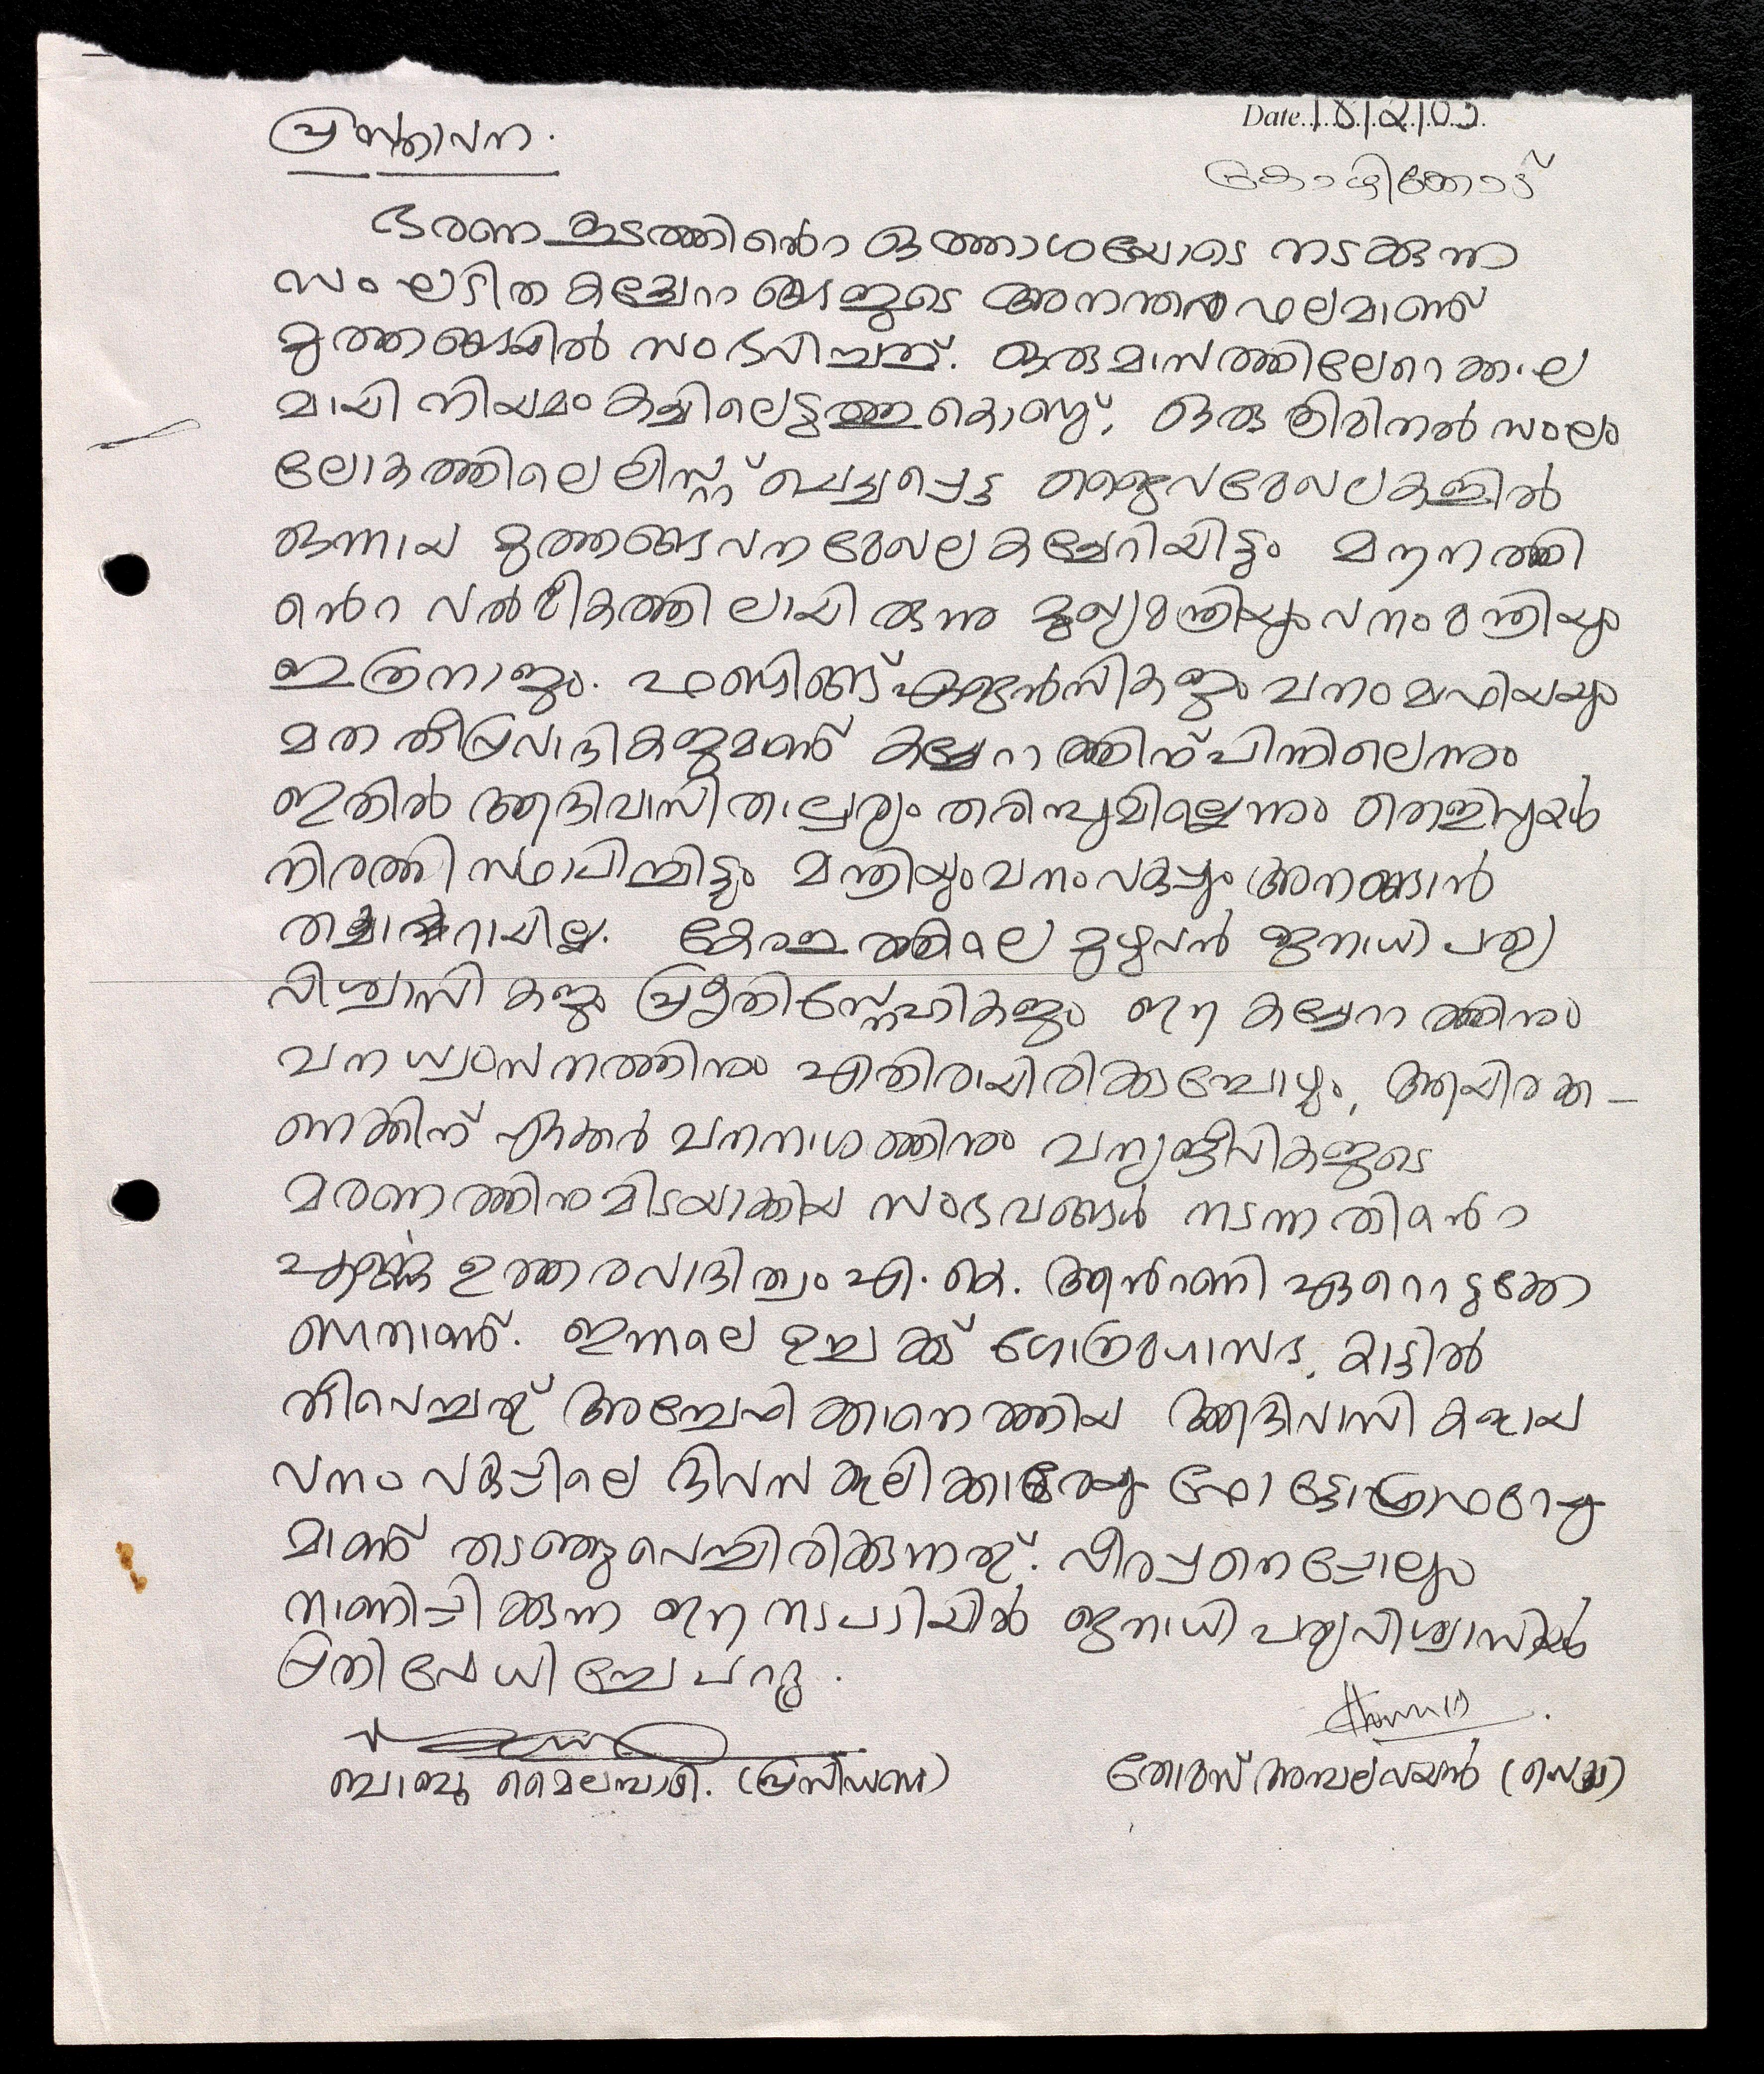 Date 18/2/03
പ്രസ്താവന.
കോഴിക്കോട്
ഭരണകൂടത്തിൻെറ ഒത്താശയോടെ നടക്കുന്ന
സംഘടിത കയ്യേറ്റങ്ങളുടെ അനന്തരഫലമാണ്
മുത്തങ്ങയിൽ സംഭവിച്ചത്. ഒരു മാസത്തിലേറെക്കാല
മായി നിയമം കയ്യിലെടുത്തുകൊണ്ട്, ഒരു ക്രിമിനൽ സംഘം
ലോകത്തിലെ ലിസ്റ്റ് ചെയ്യപ്പെട്ട ജൈവമേഖലകളിൽ
ഒന്നായ മുത്തങ്ങ വനമേഖല കയ്യേറിയിട്ടും മൗനത്തി
ൻെറ വൽമീകത്തിലായിരുന്നു മുഖ്യമന്ത്രിയും വനംമന്ത്രിയും
ഇത്രനാളും. ഫണ്ടിങ്ങ് ഏജൻസികളും വനം മാഫിയയും
മത തീവ്രവാദികളുമാണ് കയ്യേറ്റത്തിന് പിന്നിലെന്നും
ഇതിൽ ആദിവാസി താല്പര്യം തരിമ്പുമില്ലെന്നും തെളിവുകൾ
നിരത്തി സ്ഥാപിച്ചിട്ടും മന്ത്രിയും വനംവകുപ്പും അനങ്ങാൻ
തയ്യാറായില്ല. കേരളത്തിലെ മുഴുവൻ ജനാധിപത്യ
വിശ്വാസികളും പ്രകൃതിസ്നേഹികളും ഈ കയ്യേറ്റത്തിനും
വനധ്വംസനത്തിനും എതിരായിരിക്കുമ്പോഴും, ആയിരക്ക–
ണക്കിന് ഏക്കർ വനനാശത്തിനും വന്യജീവികളുടെ
മരണത്തിനുമിടയാക്കിയ സംഭവങ്ങൾ നടന്നതിൻെറ
ഉത്തരവാദിത്വം എ. കെ. ആൻറണി ഏറ്റെടുക്കേ
ണ്ടതാണ്. ഇന്നലെ ഉച്ചക്ക് ഗോത്രമഹാസഭ, കാട്ടിൽ
തീവെച്ചത് അന്വേഷിക്കാനെത്തിയ ആദിവാസികളായ
വനം വകുപ്പിലെ ദിവസ കൂലിക്കാരേയും ഫോട്ടോഗ്രാഫറേയു
മാണ് തടഞ്ഞുവെച്ചിരിക്കുന്നത്. വീരപ്പനെപ്പോലും
നാണിപ്പിക്കുന്ന ഈ നടപടിയിൽ ജനാധിപത്യവിശ്വാസികൾ
പ്രതിഷേധിച്ചേ പറ്റൂ.
ബാബു മൈലമ്പാടി. (പ്രസിഡണ്ട്)
തോമസ് അമ്പലവയൽ (സെക്ര)